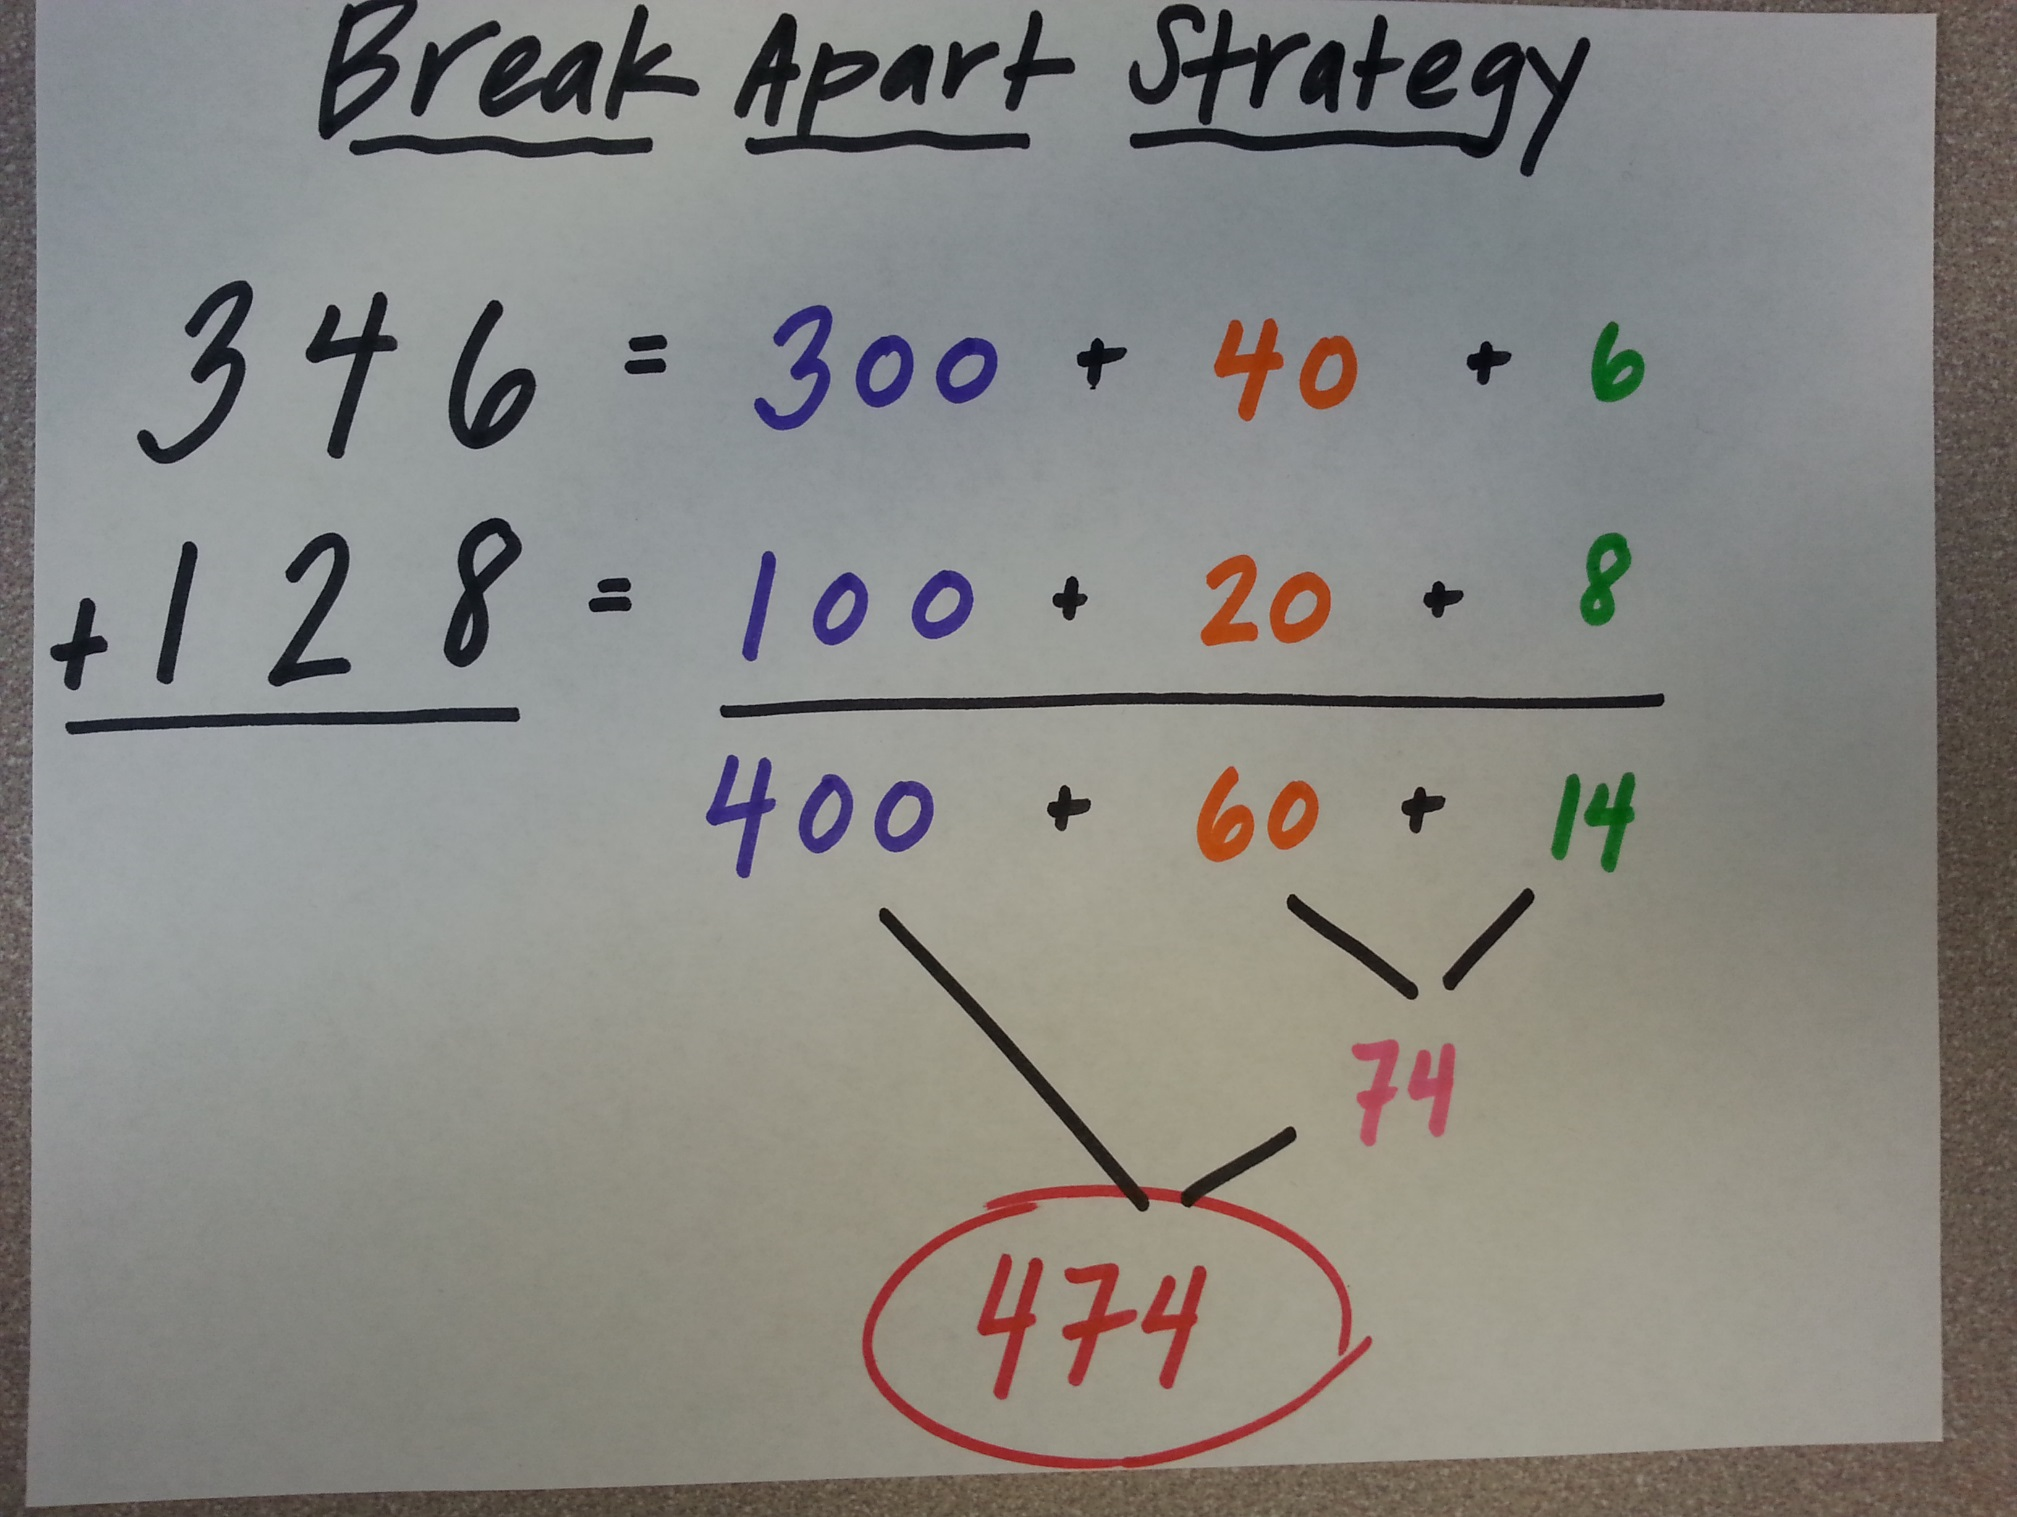 Break Apart Strategy
346 = 300 + 40 + 6
+128 = 100 + 20 + 8
400 + 60 + 14
74
474